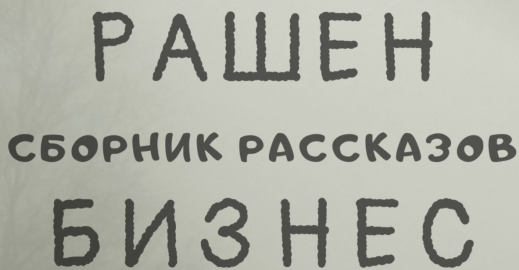 РАШЕН
СБОРНИК РАССКАЗОВ
БИЗНЕС